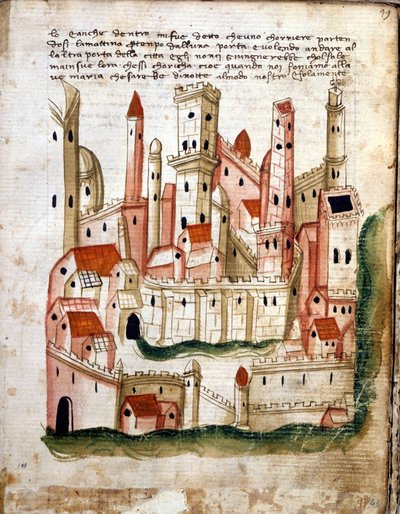 99
lo Eanche dentro mi fue detto che uno chorriere parten
dosi lamattina p tenpo dalluna porta e volendo andare al
laltra porta della citta egli non ci giungnerebbe chol sole
main sue lora chessi choricha cioe quando noi soniamo alla
ve maria che sare be di notte almodo nostro Esolamente